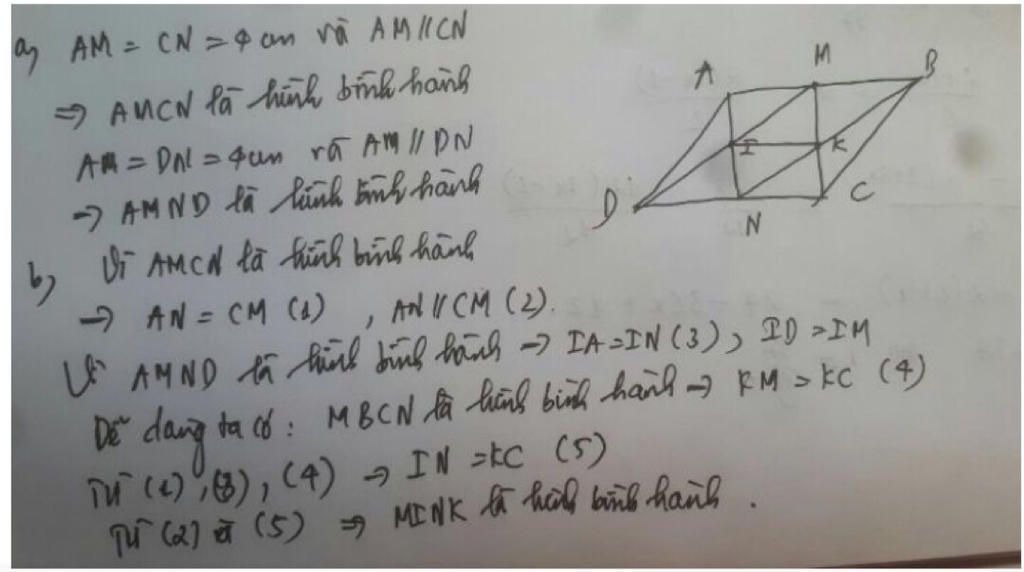 a) AM = CN = 4 cm và AM // CN
⇒ AMCN là hình bình hành
AM = DN = 4 cm và AM // DN
→ AMND là hình bình hành
b) Vì AMCN là hình bình hành
→ AN = CM (1) , AN // CM (2).
Vì AMND là hình bình hành → IA = IN (3), ID = IM
Dễ dàng ta có : MBCN là hình bình hành → KM = KC (4)
Từ (1), (3), (4) → IN = KC (5)
Từ (2) và (5) ⇒ MINK là hình bình hành .
A M B
I K
D N C